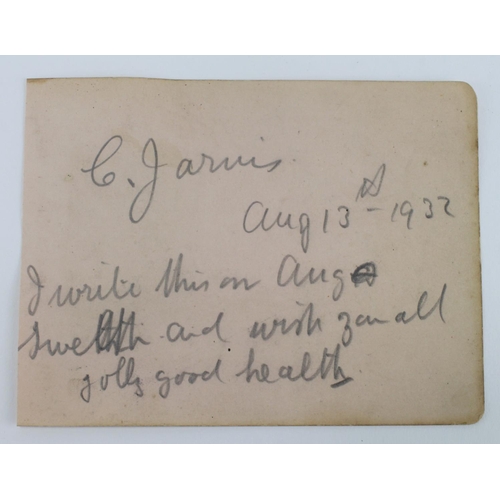 C. Jarvis.
Aug 13th - 1932
I write this on Aug
and wish you all
jolly good health